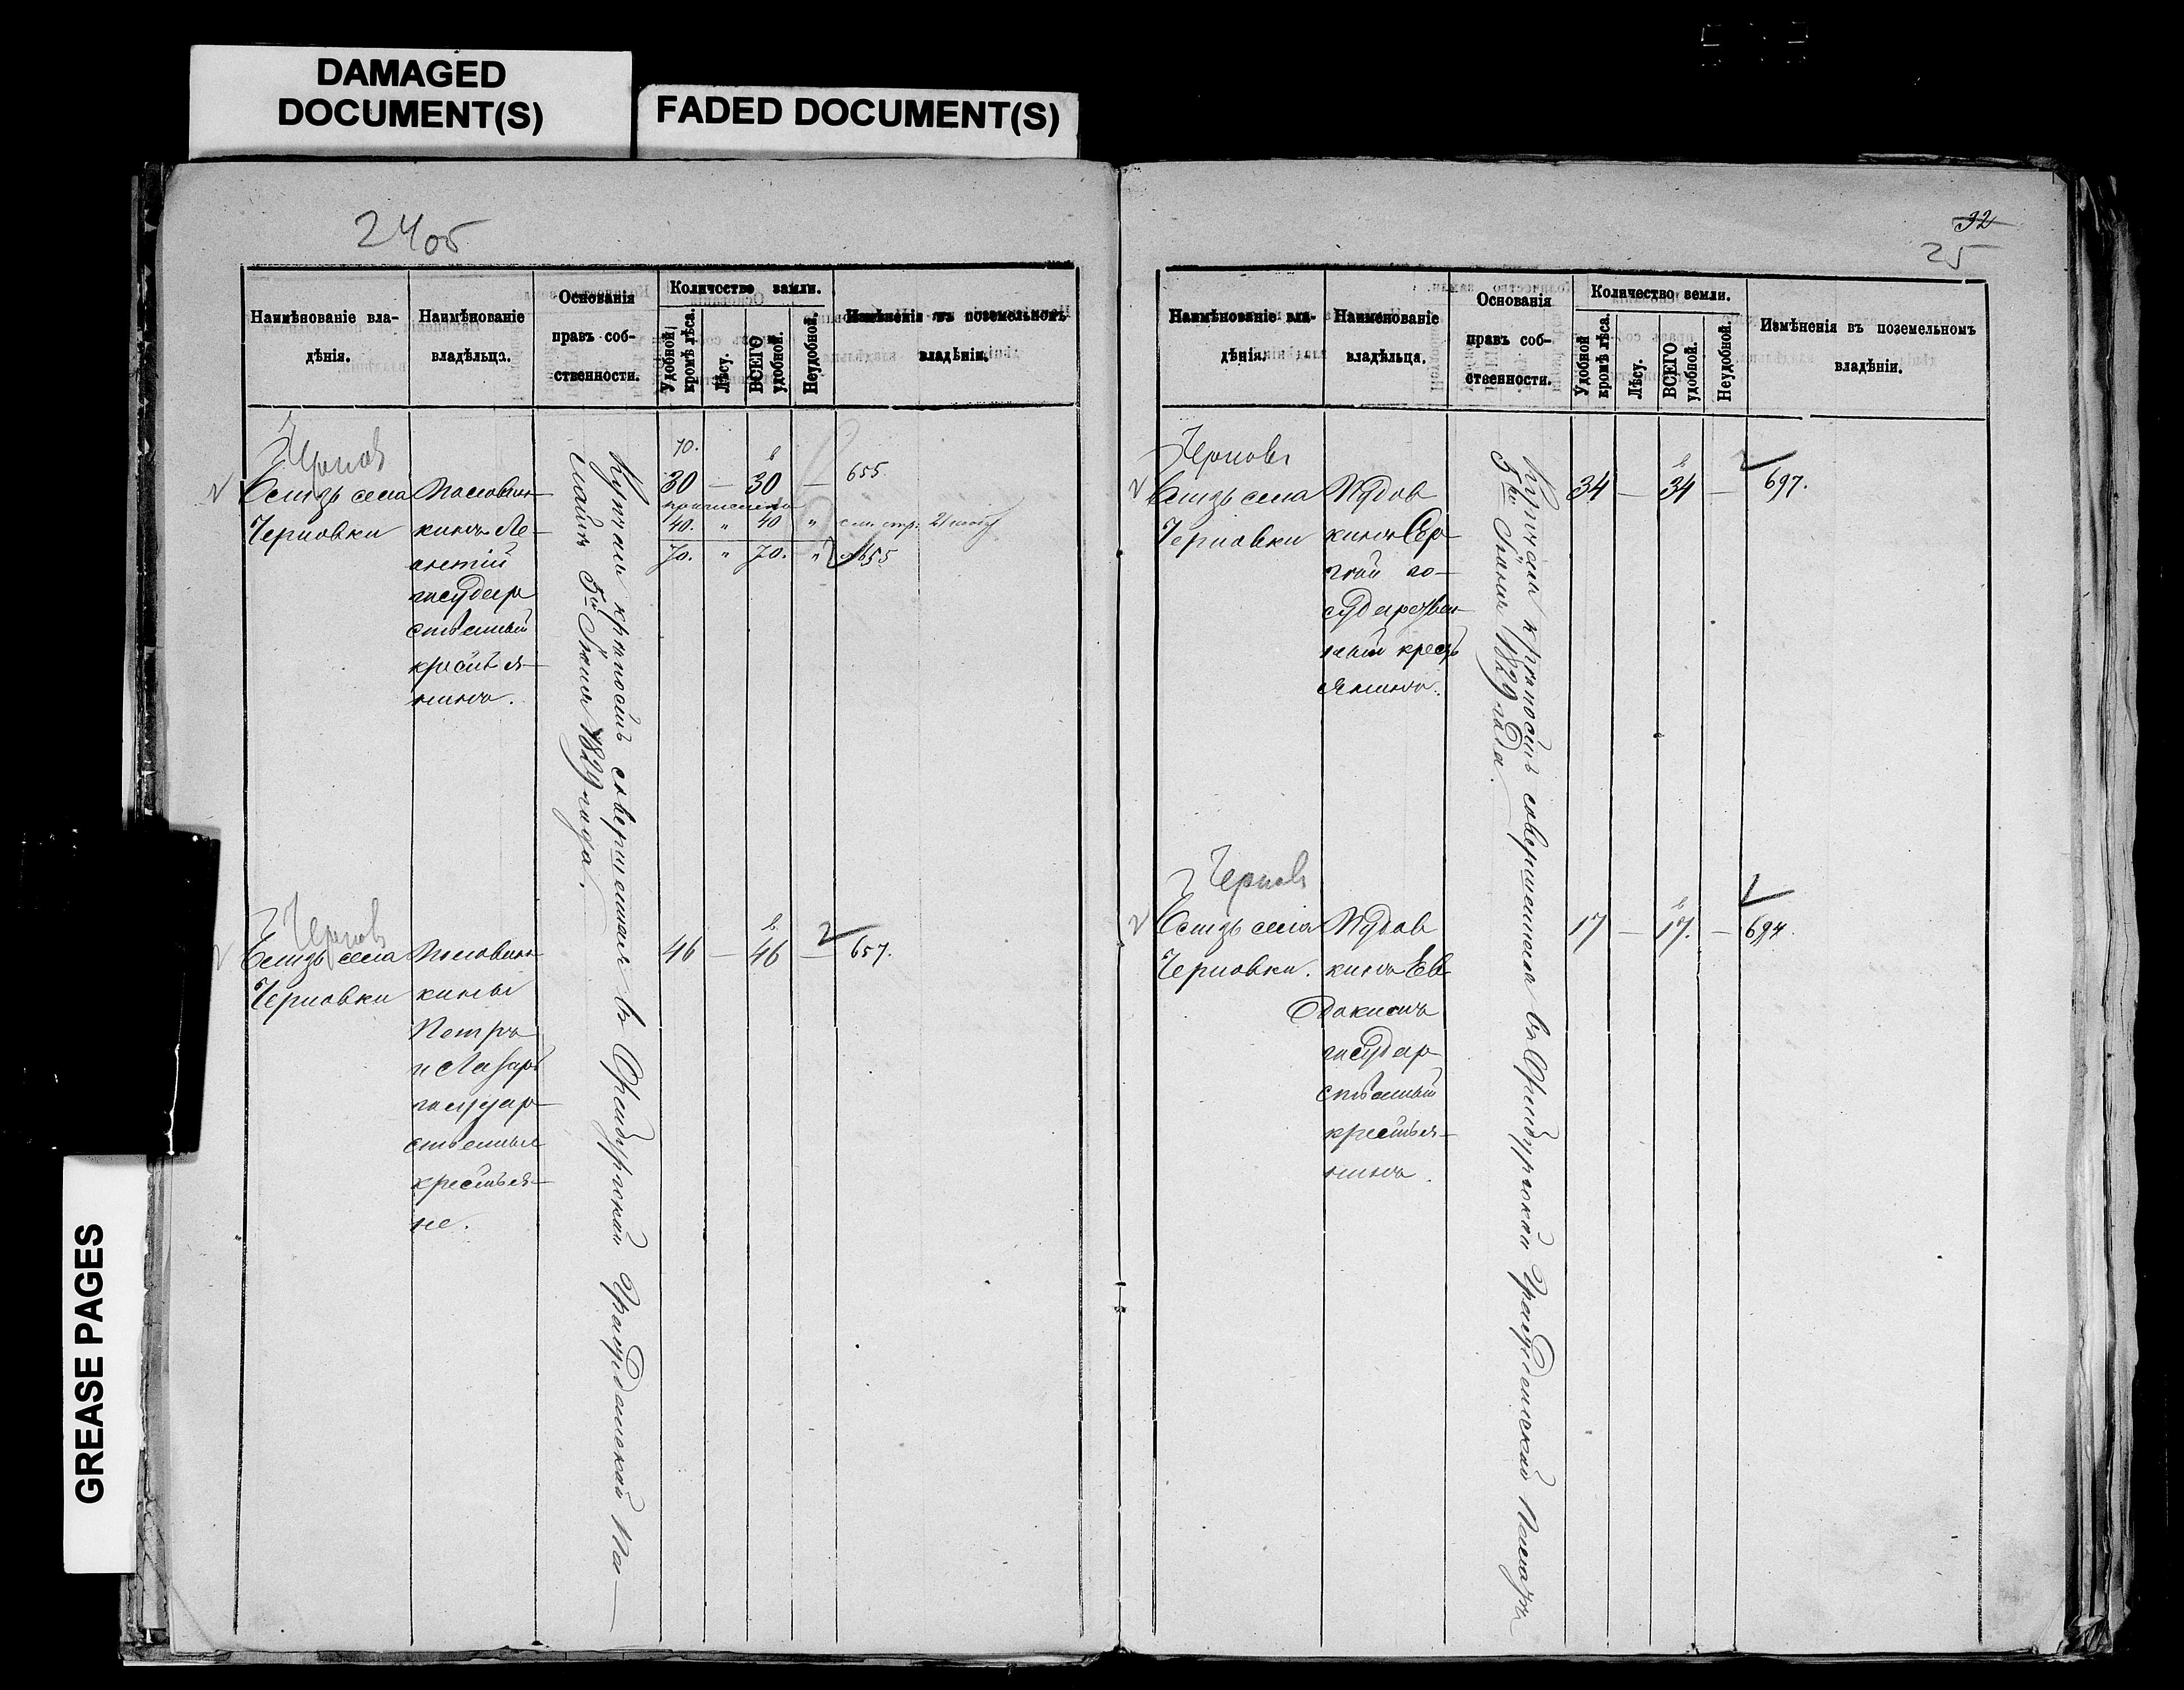 DAMAGED
DOCUMENT(S)
FADED DOCUMENT(S)
GREASE PAGES
24 об
Наимѣнованіе вла-
дѣнія.
Наимѣнованіе
владѣльца.
Основанія
правъ соб-
ственности.
Количество земли.
Удобной
кромѣ лѣса.
Лѣсу.
ВСЕГО
удобной.
Неудобной.
Измѣненія въ поземельномъ
владѣніи.
Близь села
Черновки
кинъ Ле-
онтій
государ
ственный
крестья-
нинъ.
Купчая крѣпость совершенная въ Оренбургской Гражданской Па-
латѣ 5го Іюня 1829 года.
70.
30 — 30 — 655
40. " 40 "
70. " 70. " 655
Черновк
Близь села
Черновки
кины
Петръ
и Лазарь
государ-
ственные
крестья-
не.
46 — 46 — 657.
32
25
Наимѣнованіе вла-
дѣнія.
Наименованіе
владѣльца.
Основанія
правъ соб-
ственности.
Количество земли.
Удобной
кромѣ лѣса.
Лѣсу.
ВСЕГО
удобной.
Неудобной.
Измѣненія въ поземельномъ
владѣніи.
Близь села
Черновки
Пудов
кинъ Сер
гѣй го-
сударствен
ный кресть
янинъ.
Купчая крѣпость совершенная въ Оренбургской Гражданской Палатѣ
5го Іюня 1829 года.
34 — 34 — 697.
Черновк
Близь села
Черновки.
Пудов
кинъ Ев
докимъ
государ
ственный
крестья-
нинъ.
17 — 17. — 694.